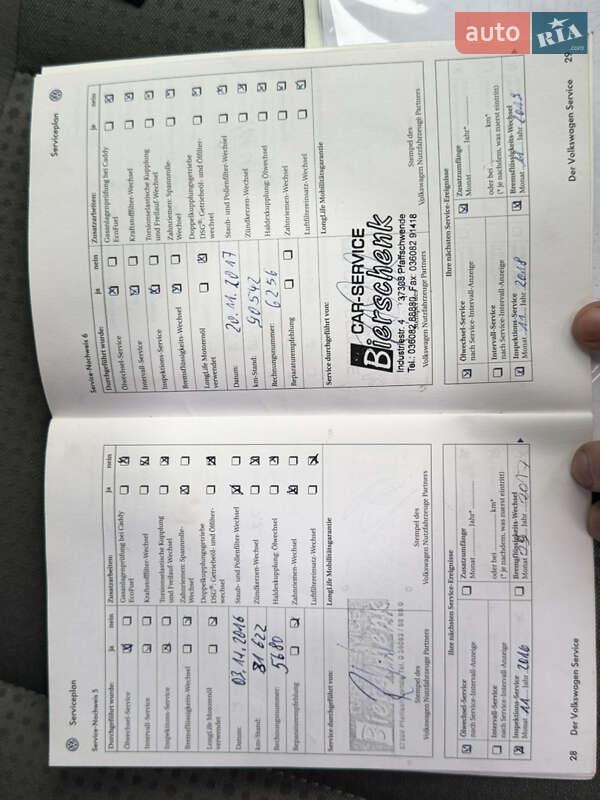 auto RIA.com
Serviceplan
Service-Nachweis 5
Durchgeführt wurde: ja nein
Ölwechsel-Service
Intervall-Service
Inspektions-Service
Bremsflüssigkeits-Wechsel
LongLife Motorenöl
verwendet
Datum: 03.11.2016
km-Stand: 81 622
Rechnungsnummer: 5680
Reparaturempfehlung
Service durchgeführt von:
Stempel des
Volkswagen Nutzfahrzeuge Partners
Zusatzarbeiten: ja nein
Gasanlagenprüfung bei Caddy
EcoFuel
Kraftstofffilter-Wechsel
Torsionselastische Kupplung
und Freilauf-Wechsel
Zahnriemen: Spannrolle-
Wechsel
Doppelkupplungsgetriebe
DSG®: Getriebeöl- und Ölfilter-
wechsel
Staub- und Pollenfilter-Wechsel
Zündkerzen-Wechsel
Haldexkupplung: Ölwechsel
Zahnriemen-Wechsel
Luftfiltereinsatz-Wechsel
LongLife Mobilitätsgarantie
Stempel des
Volkswagen Nutzfahrzeuge Partners
Ihre nächsten Service-Ereignisse
Ölwechsel-Service
nach Service-Intervall-Anzeige
Intervall-Service
nach Service-Intervall-Anzeige
Inspektions-Service
Monat 11 Jahr 2016
Zusatzumfänge
Monat Jahr*
oder bei km*
(* je nachdem, was zuerst eintritt)
Bremsflüssigkeits-Wechsel
Monat Jahr 2017
28 Der Volkswagen Service
Serviceplan
Service-Nachweis 6
Durchgeführt wurde: ja nein
Ölwechsel-Service
Intervall-Service
Inspektions-Service
Bremsflüssigkeits-Wechsel
LongLife Motorenöl
verwendet
Datum: 20.11.2017
km-Stand: 90542
Rechnungsnummer: 6256
Reparaturempfehlung
Service durchgeführt von:
CAR-SERVICE
Bierschenk
Industriestr. 4 37308 Pfaffschwende
Tel.: 036082 88880 Fax: 036082 91418
Volkswagen Nutzfahrzeuge Partners
Zusatzarbeiten: ja nein
Gasanlagenprüfung bei Caddy
EcoFuel
Kraftstofffilter-Wechsel
Torsionselastische Kupplung
und Freilauf-Wechsel
Zahnriemen: Spannrolle-
Wechsel
Doppelkupplungsgetriebe
DSG®: Getriebeöl- und Ölfilter-
wechsel
Staub- und Pollenfilter-Wechsel
Zündkerzen-Wechsel
Haldexkupplung: Ölwechsel
Zahnriemen-Wechsel
Luftfiltereinsatz-Wechsel
LongLife Mobilitätsgarantie
Stempel des
Volkswagen Nutzfahrzeuge Partners
Ihre nächsten Service-Ereignisse
Ölwechsel-Service
nach Service-Intervall-Anzeige
Intervall-Service
nach Service-Intervall-Anzeige
Inspektions-Service
Monat 11 Jahr 2018
Zusatzumfänge
Monat Jahr*
oder bei km*
(* je nachdem, was zuerst eintritt)
Bremsflüssigkeits-Wechsel
Monat 11 Jahr
Der Volkswagen Service 29